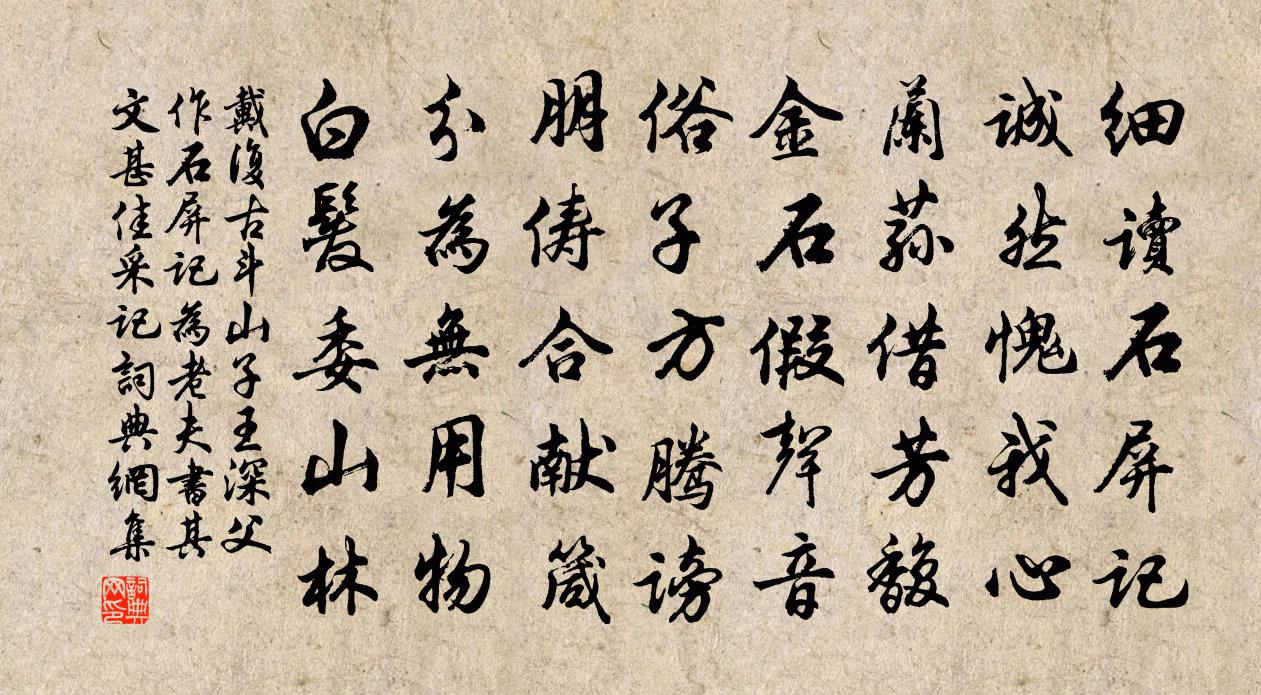 细讀石屏記
誠然愧我心
蘭蓀借芳馥
金石假聲音
俗子方騰謗
朋儔合献箴
分為無用物
白髮委山林
戴復古斗山子王深父
作石屏記為老夫書其
文甚佳采記詞典網集